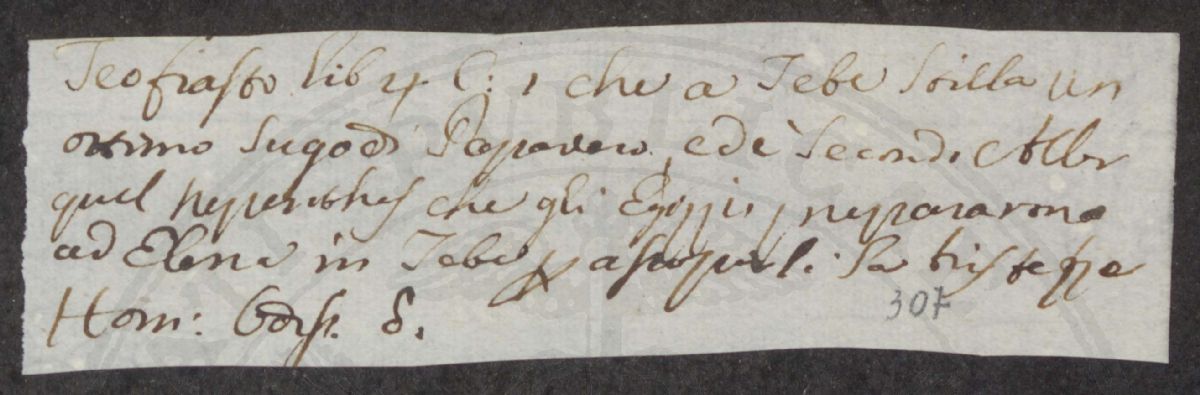 Teofrasto lib 4. C: 1 che a Tebe stilla un
ottimo sugo di Papavero, ed è secondo Altr
quel nepenthes che gli Egizzii prepararono
ad Elena in Tebe p la tristezza
Hom: Odis. 8.
307